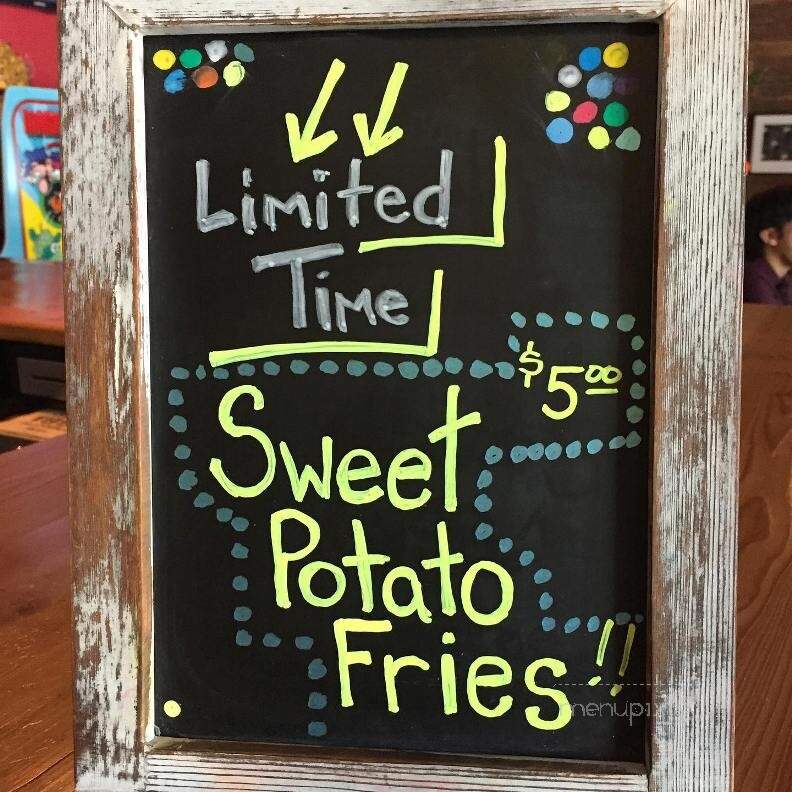 Limited
Time
$5.00
Sweet
Potato
Fries!!
menupix